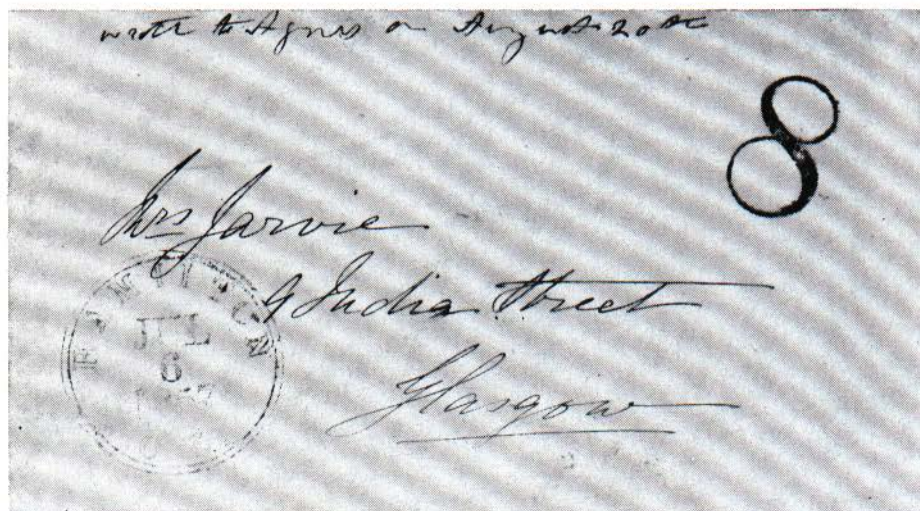 wrote to Agnes on August 20th
8
Mrs Jarvie
9 India Street
Glasgow
JUL
6